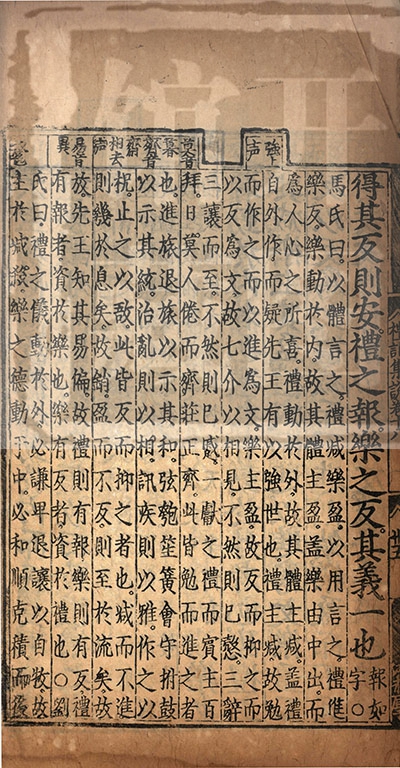 得其反則安禮之報樂之反其義一也報如字○
馬氏曰以體言之禮減樂盈以用言之禮進
樂反樂動於內故其體主盈盖樂由中出而
為人心之所喜禮動於外故其體主減盖禮
自外作而疑先王有以強世也禮主減故勉
而作之而以進為文樂主盈故反而抑之而
以反為文故七介以相見不然則已慤三辭
三讓而至不然則已蹙一獻之禮而賓主百
拜日莫人倦而齊莊正齊此皆勉而進之者
也進旅退旅以示其和弦匏笙簧會守拊鼓
以示其統治亂則以相訊疾則以雅作之以
柷止之以敔此皆反而抑之者也減而不進
則幾於息矣故銷盈而不反則至於流矣故
放先王知其易偏故禮則有報樂則有反禮
有報者資於樂也樂有反者資於禮也○劉
氏曰禮之儀動於外必謙卑退讓以自牧故
主於減殺樂之德動于中必和順克積而後
強上声
莫音暮
齊音齋
相去声
易音異